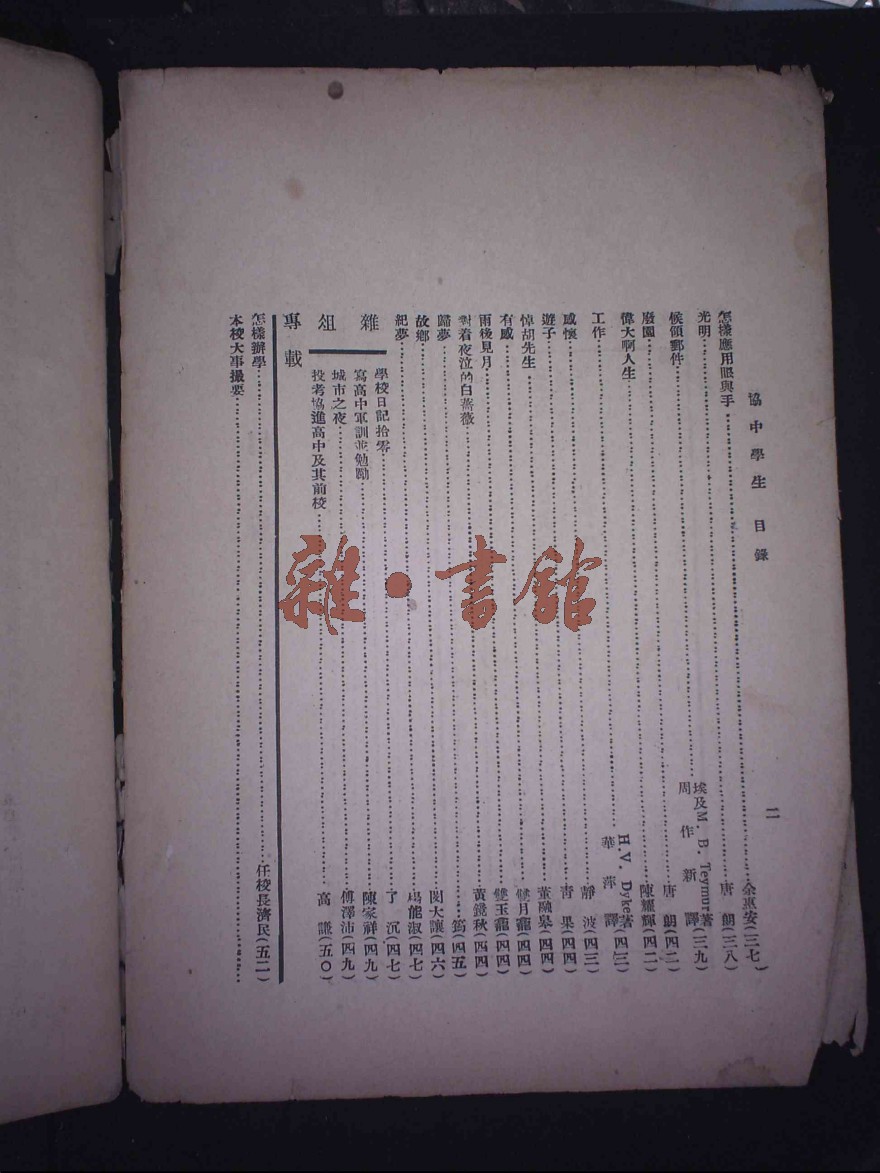 協中學生 目錄 二
怎樣應用眼與手……余惠安(三七)
光明……唐 朝(三八)
候領郵件……埃及M. B. Teymur著 周作新 譯(三九)
廢園……唐 朝(四二)
偉大啊人生……陳耀輝(四二)
工作……H.V. Dyke著 華萍 譯(四三)
感懷……靜 波(四三)
遊子……青 果(四四)
悼胡先生……董融皋(四四)
有感……雙月龍(四四)
雨後見月……雙玉龍(四四)
對着夜泣的白薔薇……黃鏡秋(四四)
歸夢……筠(四五)
故鄉……閔大讓(四六)
紀夢……馬能淑(四七)
雜俎
學校日記拾零……了 沉(四七)
寫高中軍訓並勉勵……陳家祥(四九)
城市之夜……傅澤沛(四九)
投考協進高中及其前校……高 謙(五〇)
專載
怎樣辦學……任校長濟民(五二)
本校大事撮要……
雜·書館